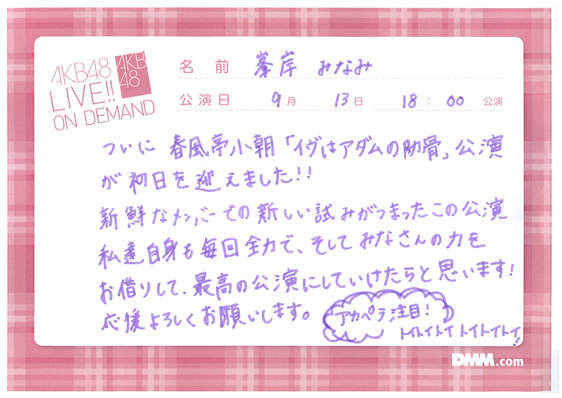 AKB48
LIVE!!
ON DEMAND
AKB
48
名前 峯岸 みなみ
公演日 9月 13日 18:00 公演
ついに 春風亭小朝「イヴはアダムの肋骨」公演
が初日を迎えました!!
新鮮なメンバーでの新しい試みがつまったこの公演
私達自身も毎回全力で、そしてみなさんの力を
お借りして、最高の公演にしていけたらと思います!
応援よろしくお願いします。
アカペラ注目!
トイトイトイ トイトイトイ!
DMM.com